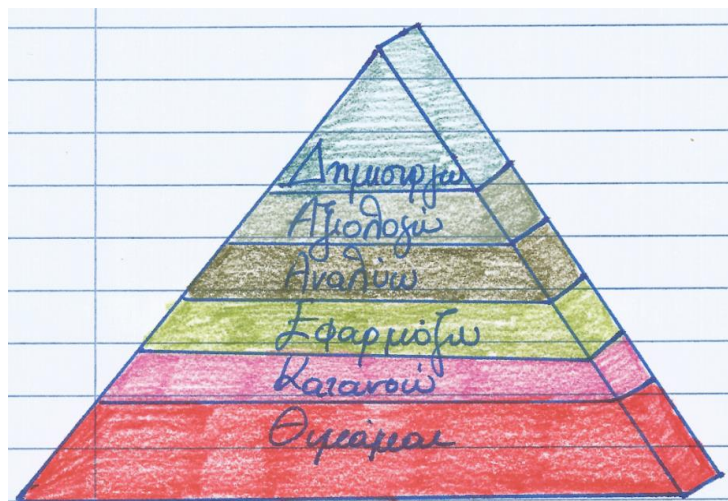 Δημιουργώ
Αξιολογώ
Αναλύω
Εφαρμόζω
Κατανοώ
Θυμάμαι